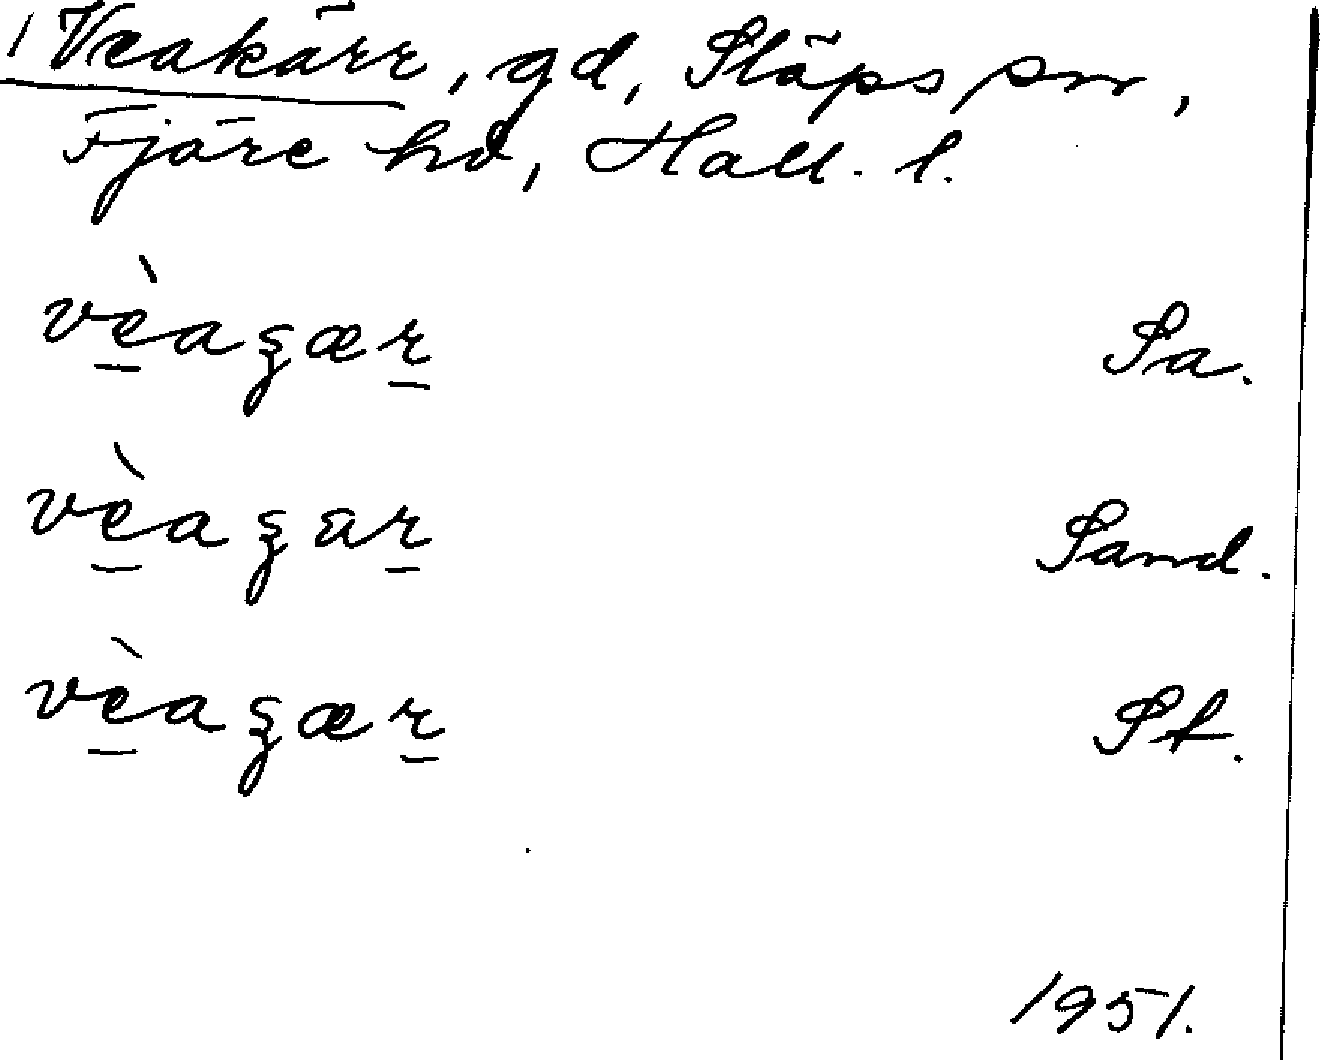 Veakärr, gd, Släps sn,
Fjäre hd, Hall. l.
vèaʒær Sa.
vèaʒar Sand.
vèaʒær St.
1951.